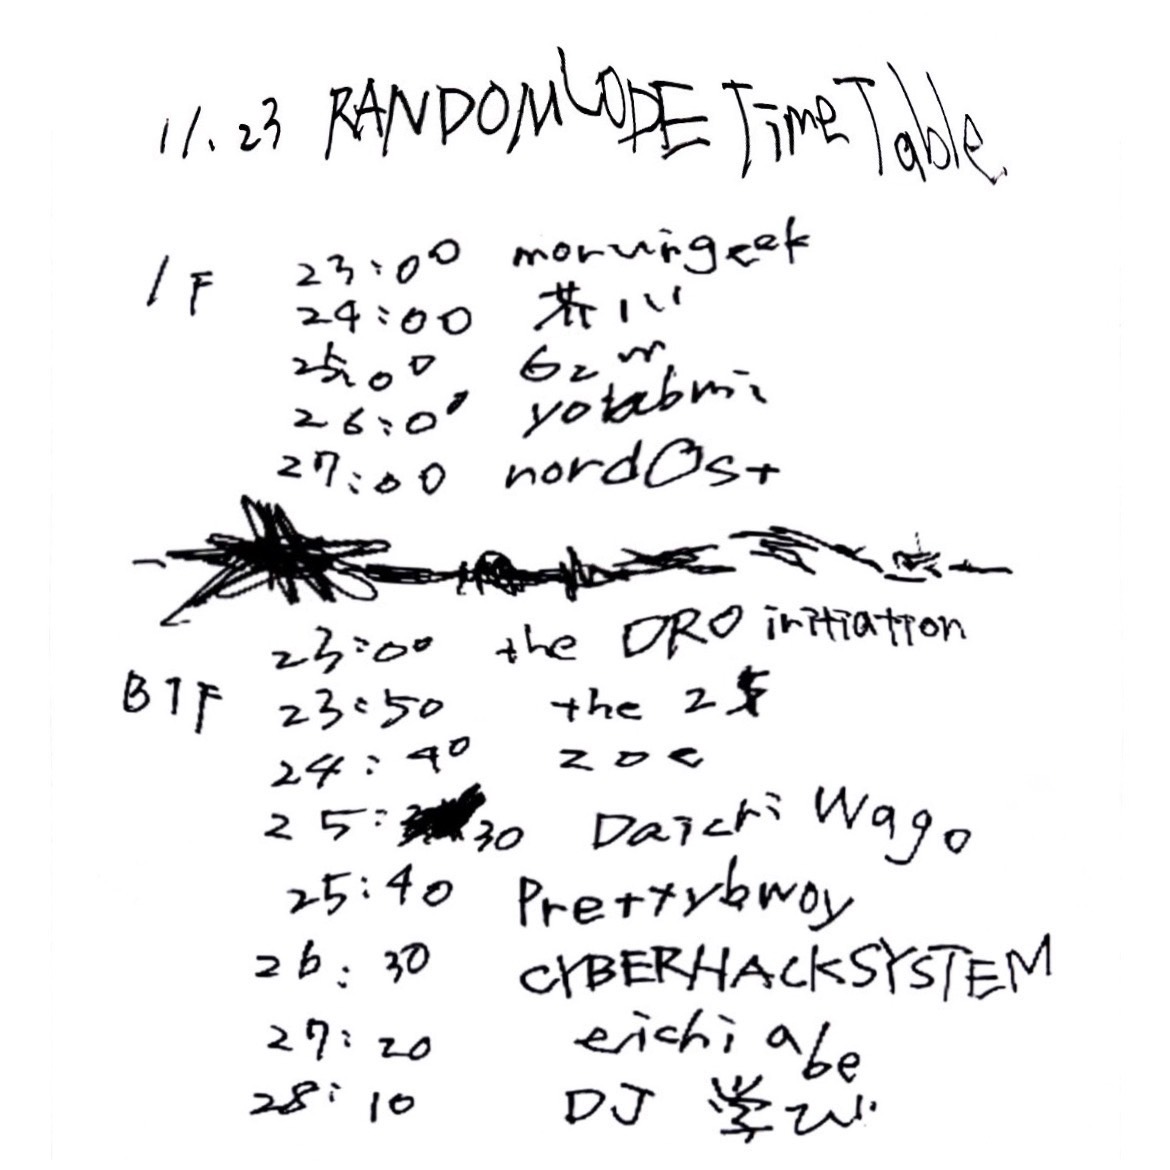 11.23 RANDOMLODE Time Table.
1F 23:00 morningeek
24:00 芥川
25:00 Gzm
26:00 yotabmi
27:00 nordOst
B1F 23:00 the DRO initiation
23:50 the 25
24:40 zoe
25:30 Daichi Wago
25:40 Prettybwoy
26:30 CYBERHACKSYSTEM
27:20 eichi abe
28:10 DJ 学び